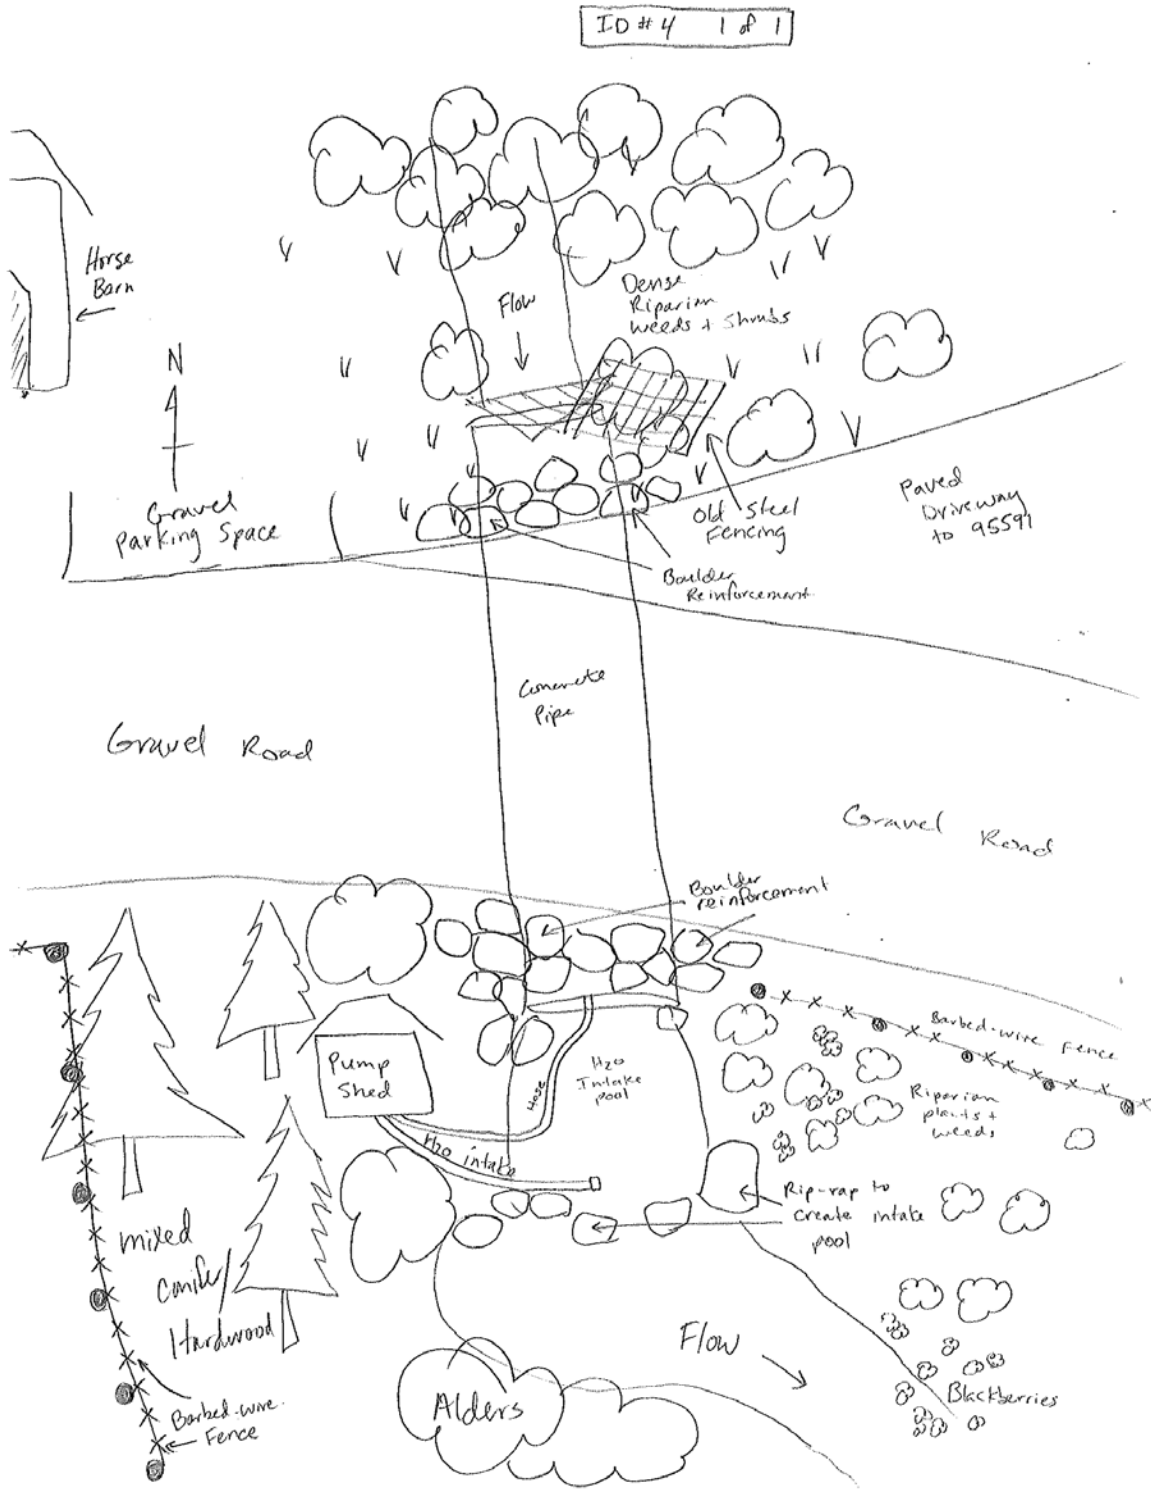 ID # 4 1 of 1
Horse
Barn
Flow
Dense
Riparian
weeds + shrubs
N
Gravel
Parking Space
Old Steel
Fencing
Paved
Driveway
to 95591
Boulder
Reinforcement
Concrete
Pipe
Gravel Road
Gravel Road
Boulder
reinforcement
Barbed-wire Fence
Pump
Shed
Hose
H2O
Intake
pool
Riparian
plants +
weeds
H2O intake
Rip-rap to
create intake
pool
mixed
Conifer/
Hardwood
Flow
Alders
Blackberries
Barbed-wire
Fence